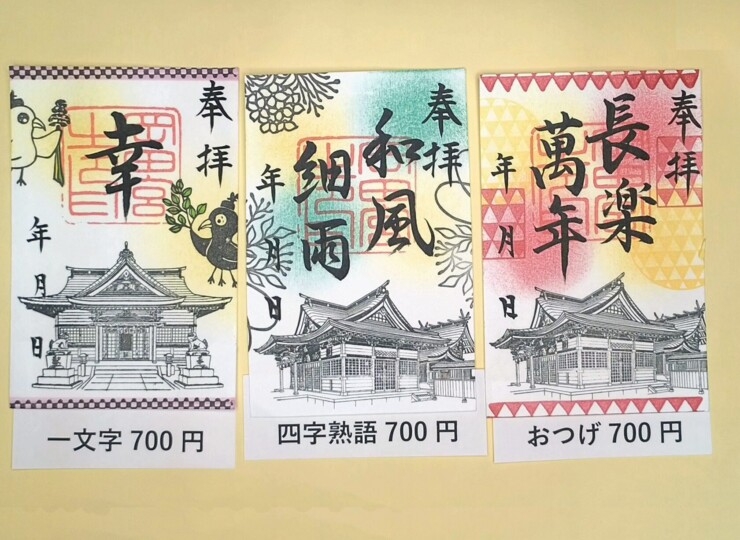 奉拝
幸
年月日
一文字 700 円
奉拝
和風
細雨
年月日
四字熟語 700 円
奉拝
長楽
萬年
年月日
おつげ 700 円